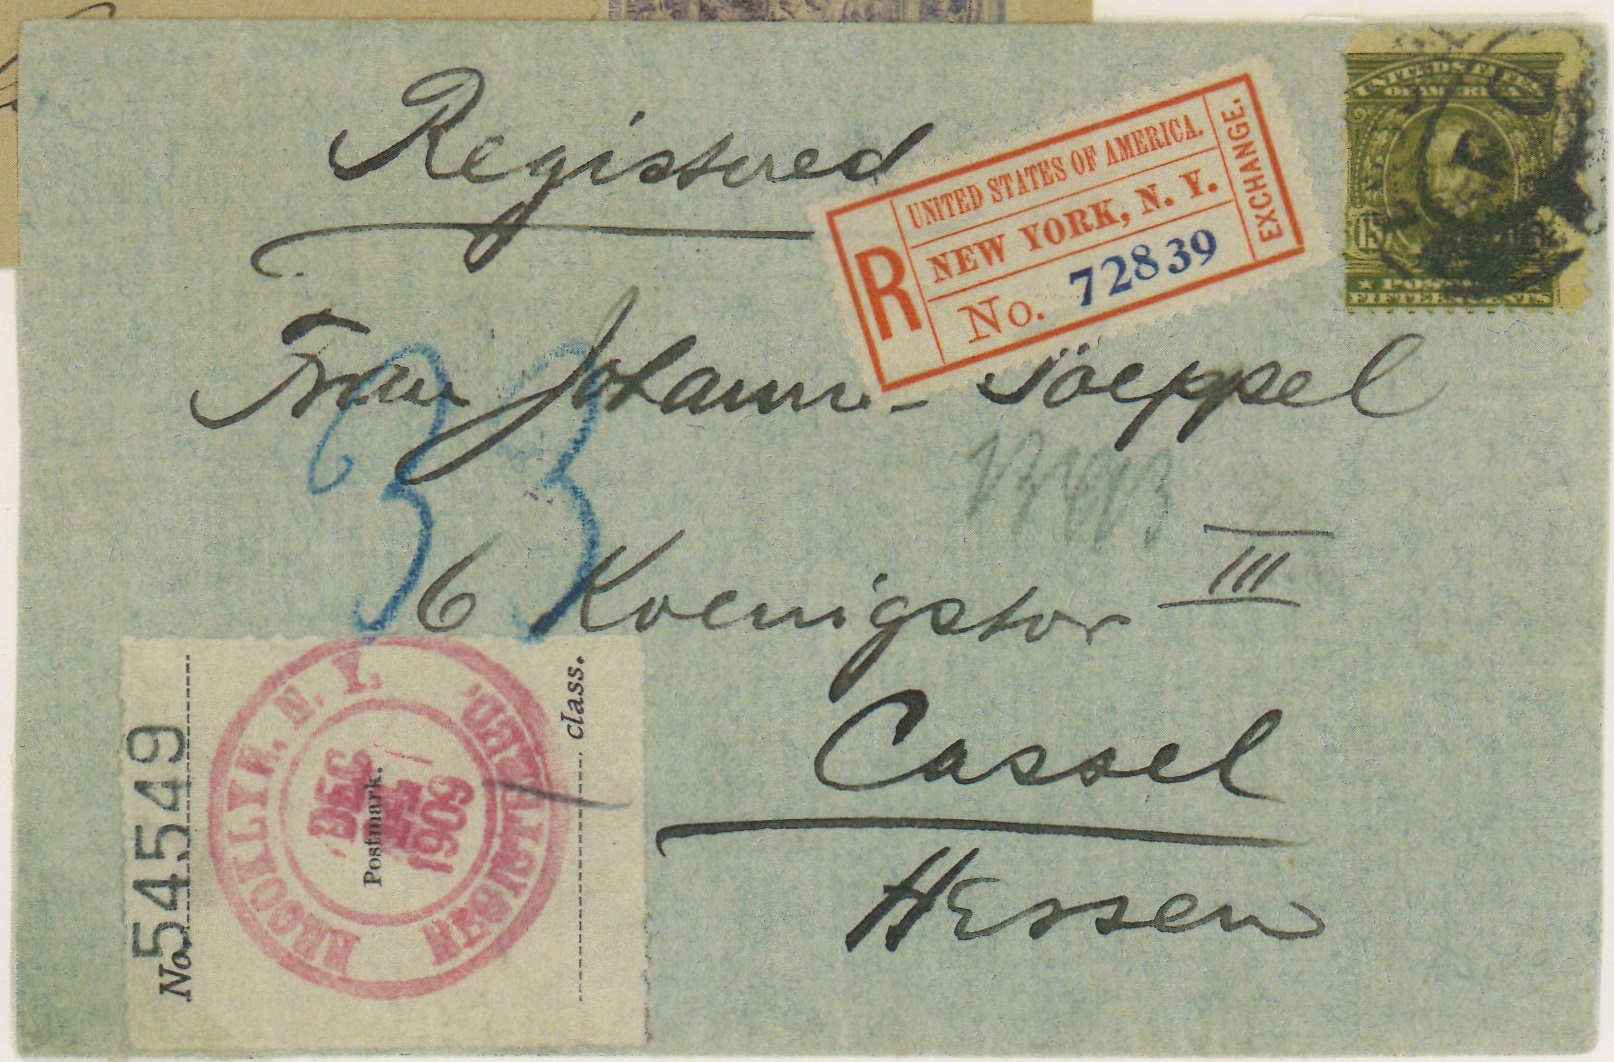 Registered
UNITED STATES OF AMERICA.
NEW YORK, N. Y.
No. 72839
R
EXCHANGE.
UNITED STATES
OF AMERICA
FIFTEEN CENTS
Frau Johann
33
6 Koenigstor III
Cassel
Hessen
No. 54549
BROOKLYN, N. Y.
DEC
1909
Postmark.
class.